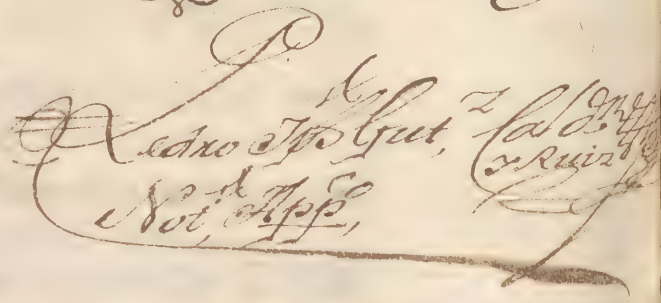 Pedro Jph Gut,z Cald
y Ruiz
Not, Appco,